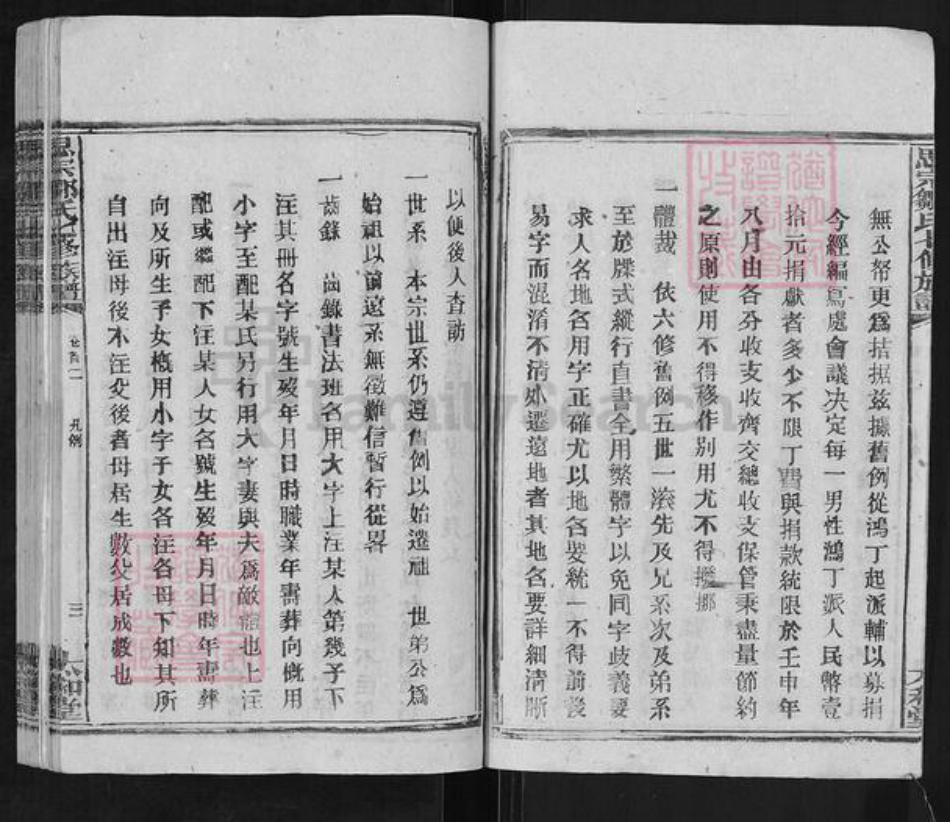 無公帑更爲拮据茲據舊例從鴻丁起派輔以募捐
今經編寫處會議决定每一男性鴻丁派人民幣壹
拾元捐獻者多少不限丁費與捐款統限於壬申年
八月由各房收支收齊交總收支保管秉盡量節約
之原則使用不得移作别用尤不得挪
一體裁 依六修舊例五世一滾先及兄系次及弟系
至於牒式縱行直書全用繁體字以免同字歧義要
求人名地名用字正確尤以地名要統一不得前後
易字而混淆不清如遷遠地者其地名要詳細清晰
以便後人查訪
一世系 本宗世系仍遵舊例以始遷祖 世弟公爲
始祖以前遠系無徵難信暫行從畧
一齒錄 齒錄書法班名用大字上注某人第幾子下
注其册名字號生歿年月日時職業年壽葬向概用
小字至配某氏另行用大字妻與夫爲敵體也上注
配或繼配下注某人女名號生歿年月日時年壽葬
向及所生子女概用小字子女各注各母下知其所
自出注母後不注父後者母居生數父居成數也
思宗鄒氏七修族譜
卷首二 凡例
三
思宗鄒氏七修族譜
FamilySearch